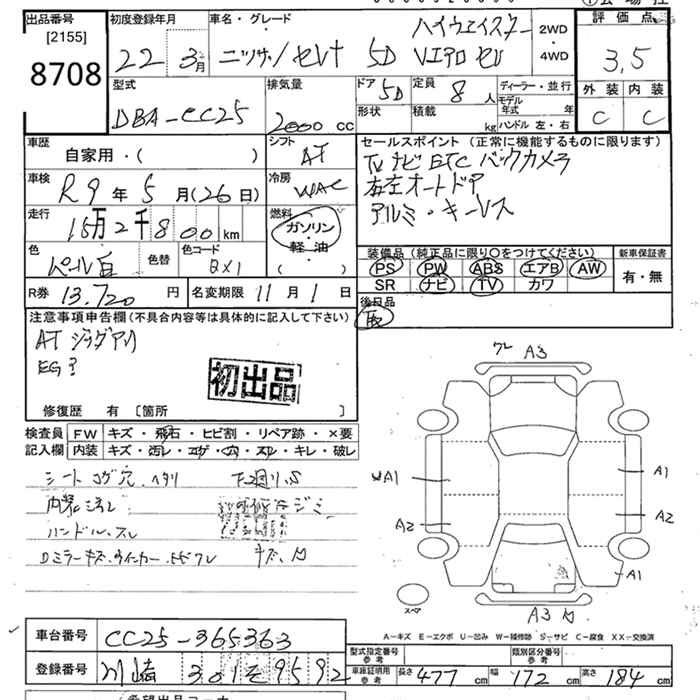 出品番号 初度登録年月 車名・グレード 評価点
[2155] ハイウェイスター 2WD
8708 22 3月 ニッサン/セレナ 5D Vエアロセレ 4WD 3.5
型式 排気量 ドア 5D 定員 8人 ディーラー・並行 外装 内装
DBA-CC25 2000cc 形状 積載 kg モデル年式 年 C C
ハンドル 左・右
車歴 シフト セールスポイント(正常に機能するものに限ります)
自家用・( ) AT TV ナビ ETC バックカメラ
車検 R9年5月(26日) 冷房 WAC 右左オートドア
走行 15万2千800km 燃料 アルミ・キーレス
ガソリン・軽油・( )
色 パール白 色替 色コード QX1 装備品(純正品に限り○をつけてください) 新車保証書
PS PW ABS エアB AW 有・無
R券 13,720円 名変期限 11月1日 SR ナビ TV カワ
注意事項申告欄(不具合内容等は具体的に記入して下さい) 後日品
AT ジャダアリ 取
EG?
初出品
修復歴 有 [箇所 ]
A3
検査員 FW キズ・飛石・ヒビ割・リペア跡・×要
記入欄 内装 キズ・汚レ・コゲ・穴・スレ・キレ・破レ
シートコゲ穴.ヘタリ 下廻りS
WA1 A1
内装汚レ
A2 A2
ハンドルスレ
Dミラーキズ.ウインカーヒビワレ キズ.
A1
スペア
A3
A-キズ E-エクボ U-凹み W-補修跡 S-サビ C-腐食 XX-交換済
車台番号 CC25-365363
型式指定番号 参考 類別区分番号 参考
登録番号 川崎 301 そ 9592 車庫証明用 参考 長さ 477cm 幅 172cm 高さ 184cm